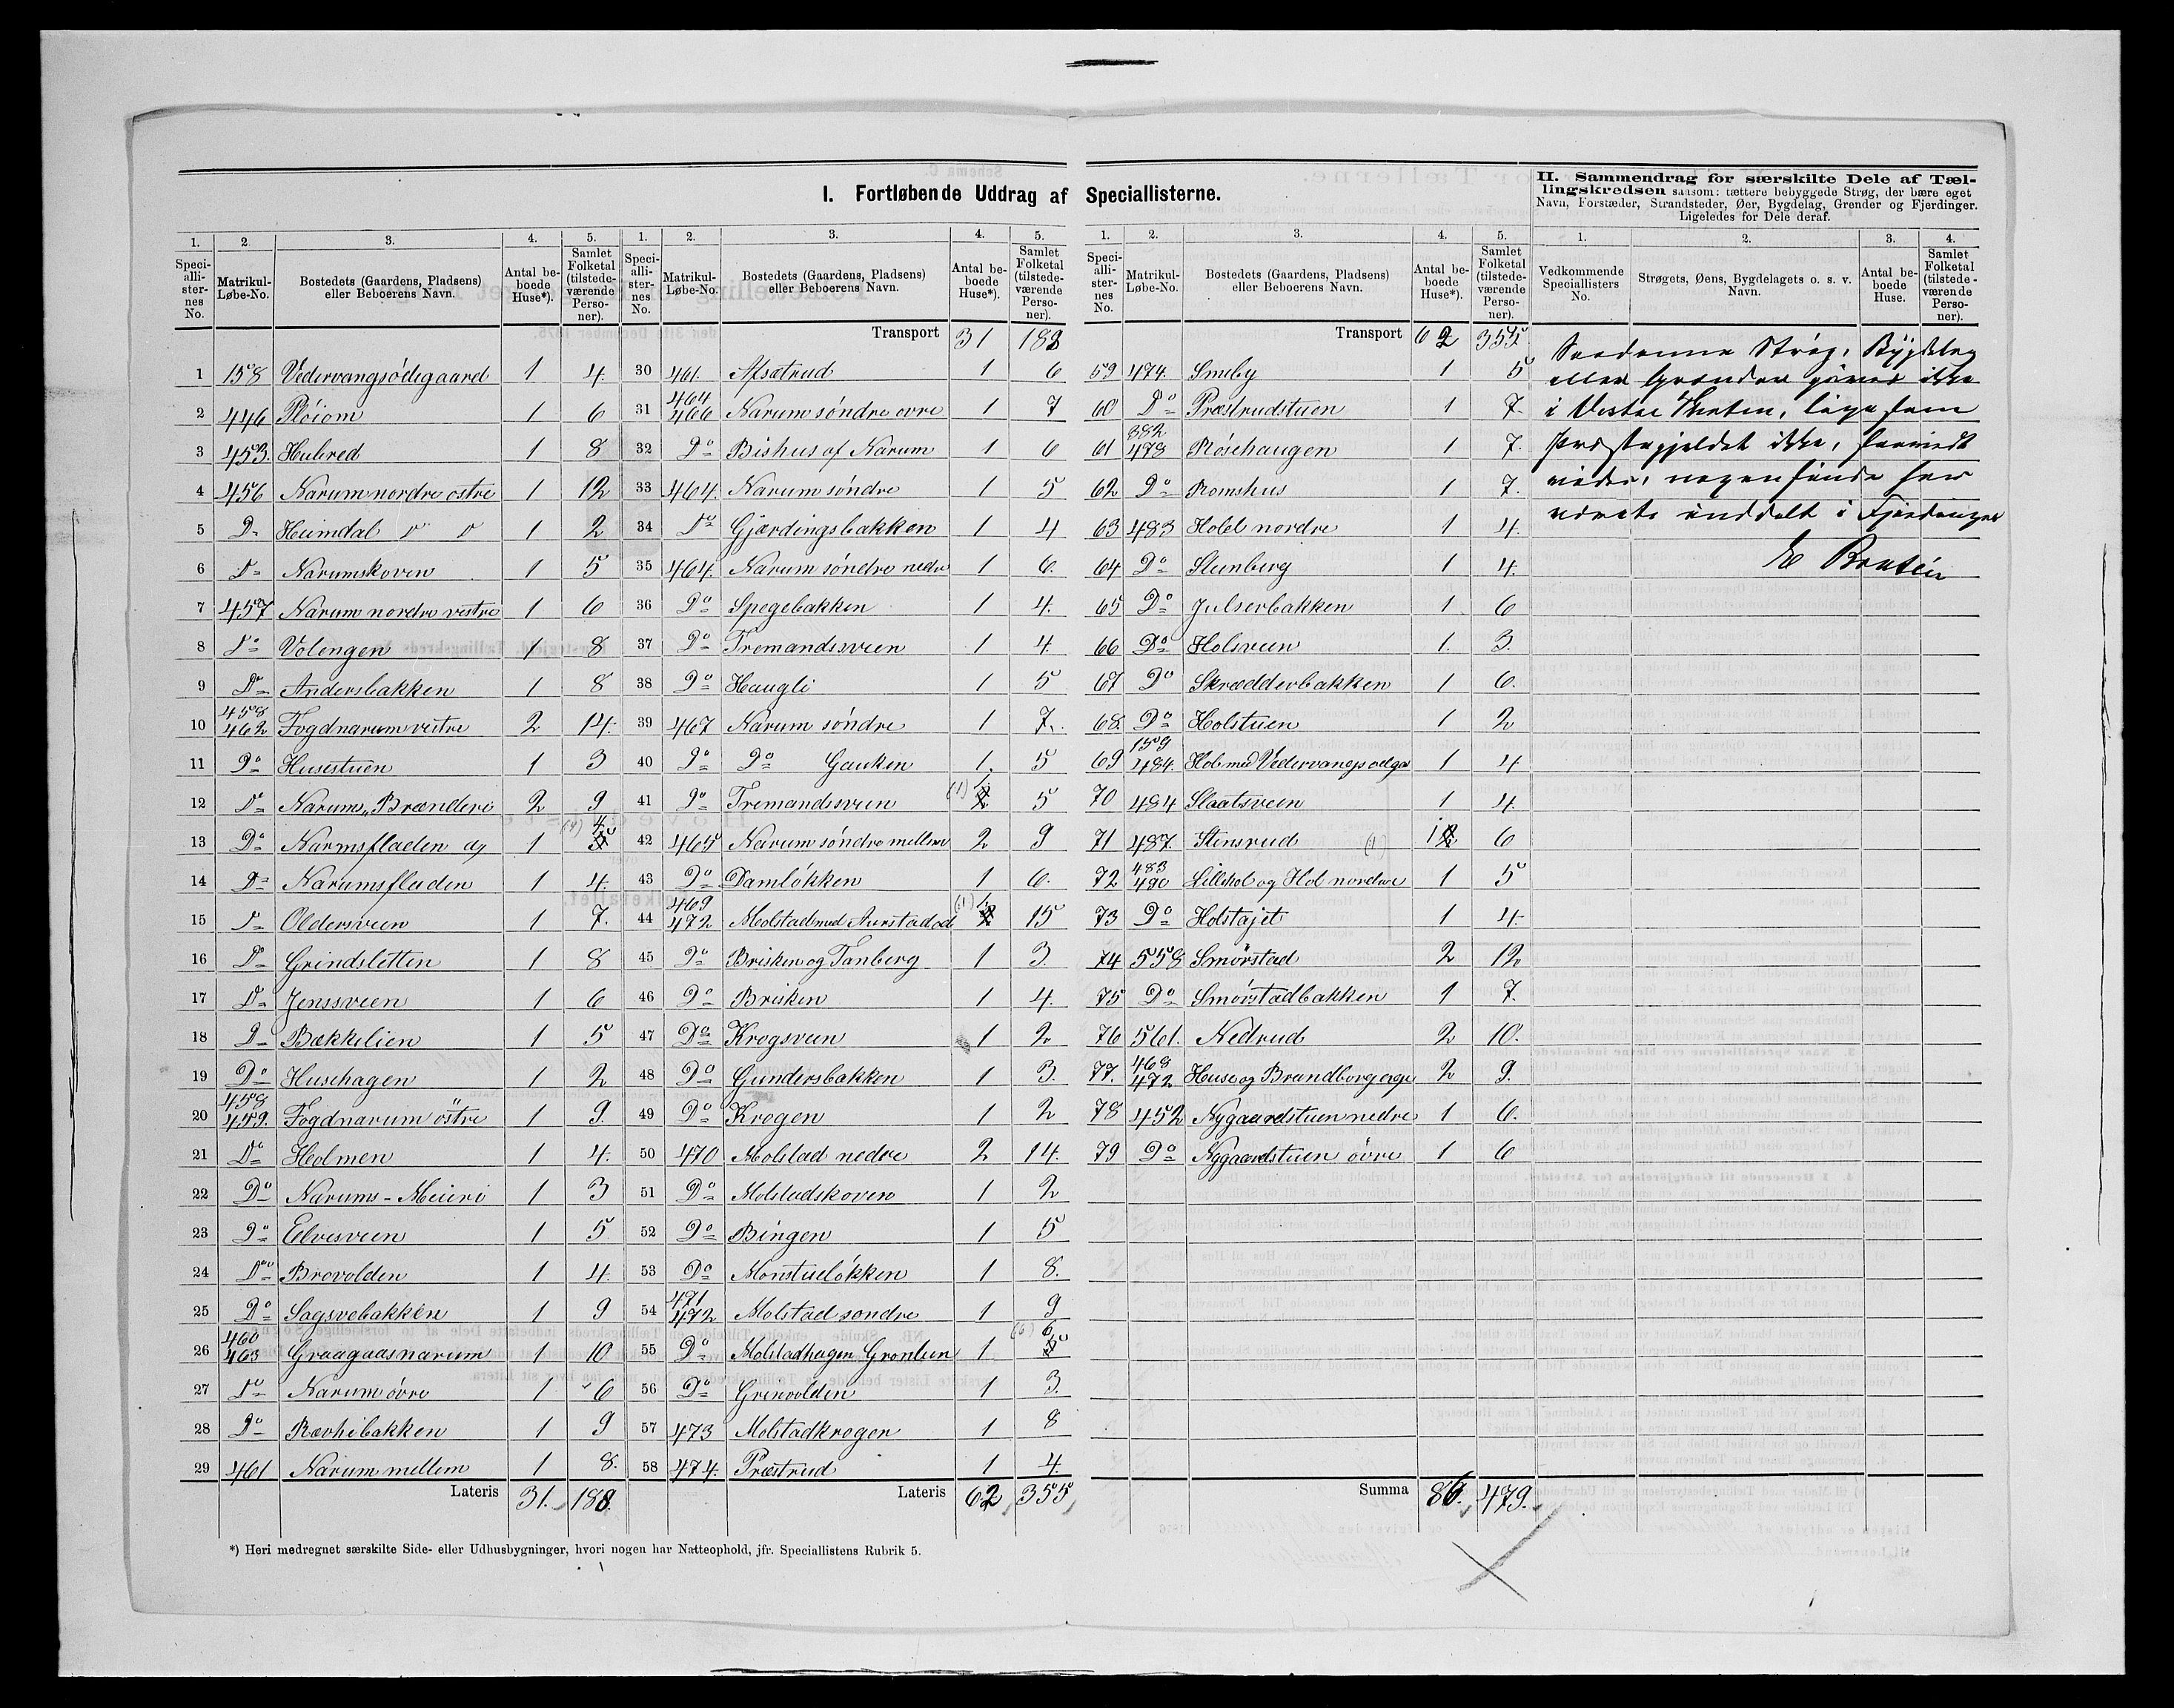 I. Fortløbende Uddrag af Speciallisterne.
II. Sammendrag for særskilte Dele af Tæl-
lingskredsen saasom: tættere bebyggede Strøg, der bære eget
Navn, Forstæder, Strandsteder, Øer, Bygdelag, Grender og Fjerdinger.
Ligeledes for Dele deraf.
1. 2. 3. 4. 5.
Speciallisternes No. Matrikul-Løbe-No. Bostedets (Gaardens, Pladsens) eller Beboerens Navn. Antal beboede Huse*). Samlet Folketal (tilstedeværende Personer).
1 158 Vedervangsødegaard 1 4.
2 446 Pløiom 1 6
3 453. Hubred 1 8
4 456 Narum nordre østre 1 12
5 D= Heimdal 1 2
6 D= Narumskoven 1 5
7 457 Narum nordre vestre 1 6
8 Do Volengen 1 8
9 Do Andersbakken 1 8
10 458 462 Fogdnarum vestre 2 14.
11 Do Husestuen 1 3
12 Do Narums Brænderi 2 9
13 Do Narumsfladen og 1 (4) 4
14 Do Narumsfladen 1 4.
15 Do Oldersveen 1 7.
16 Do Grindsletten 1 8
17 Do Jenssveen 1 6
18 Do Bækkelien 1 5
19 Do Husehagen 1 2
20 458 459. Fogdnarum östre 1 9.
21 Do Holmen 1 4.
22 Do Narums-Meieri 1 3
23 Do Elvesveen 1 5
24 Do Brovolden 1 4.
25 Do Sagsvebakken 1 9
26 460 463 Graagaasnarum 1 10
27 Do Narum øvre 1 6
28 Do Rævhibakken 1 9
29 461 Narum mellem 1 8.
Lateris 31. 188.
1. 2. 3. 4. 5.
Speciallisternes No. Matrikul-Løbe-No. Bostedets (Gaardens, Pladsens) eller Beboerens Navn. Antal beboede Huse*). Samlet Folketal (tilstedeværende Personer).
Transport 31 188
30 461. Afsætrud 1 6
31 464 466 Narum søndre øvre 1 7
32 Do Bishus af Narum 1 6
33 464. Narum søndre 1 5
34 Do Gjærdingsbakken 1 4
35 464. Narum søndre nedre 1 6.
36 Do Spegebakken 1 4.
37 Do Tremandssveen 1 4.
38 Do Haugli 1 5
39 467 Narum søndre 1 7.
40 Do Do Gauken 1. 5
41 Do Tremandsveen (1) 1. 5
42 465 Narum søndre mellem 2 9
43 Do Damløkken 1 6.
44 469 472 Molstad med Aurstadød (1) 1 15
45 Do Brisken og Tanberg 1 3.
46 Do Brisken 1 4.
47 Do Krogsveen 1 2
48 Do Gundersbakken 1 3.
49 Do Krogen 1 2
50 470 Molstad nedre 2 14.
51 Do Molstadskoven 1 2
52 Do Bingen 1 5
53 Do Monstueløkken 1 8.
54 471 472 Molstad søndre 1 9
55 Do Molstadhagen Grønlien 1 (6) 6
56 Do Grinvolden 1 3.
57 473 Molstadkrogen 1 8
58 474. Præstrud 1 4.
Lateris 62 355
1. 2. 3. 4. 5.
Speciallisternes No. Matrikul-Løbe-No. Bostedets (Gaardens, Pladsens) eller Beboerens Navn. Antal beboede Huse*). Samlet Folketal (tilstedeværende Personer).
Transport 62 355
59 474. Smeby 1 5
60 Do Præstrudstuen 1 7.
61 382 478 Røsehaugen 1 7.
62 Do Romshus 1 7.
63 483 Holel nordre 1 4.
64 Do Stenberg 1 4.
65 Do Julserbakken 1 6
66 Do Holsveen 1. 3.
67 Do Skrædderbakken 1 6.
68. Do Holstuen 1 2
69 159 484. Hol med Vedervangsødga 1 4
70 484 Slaatsveen 1 4.
71 487. Stensrud (1) 1 6
72 483 490 Lillehol og Hol nordre 1 5
73 Do Holstajet 1 4.
74 558 Smørstad 2 12
75 Do Smørstadbakken 1 7.
76 561. Nedrud 2 10.
77. 468 472 Huse og Brandborg 2 9.
78 452 Nygaardstuen nedre 1 6.
79 Do Nygaardstuen øvre 1 6
Summa 86. 479.
1. 2. 3. 4.
Vedkommende Speciallisters No. Strøgets, Øens, Bygdelagets o. s. v. Navn. Antal beboede Huse. Samlet Folketal (tilstedeværende Personer).
Saadanne Strøg, Bygdelag
eller Grender gives ikke
i Vestre Thoten, ligesom
Præstegjeldet ikke, saavidt
vides, nogensinde har
været inddelt i Fjerdinger
E Braten
*) Heri medregnet særskilte Side- eller Udhusbygninger, hvori nogen har Natteophold, jfr. Speciallistens Rubrik 5.